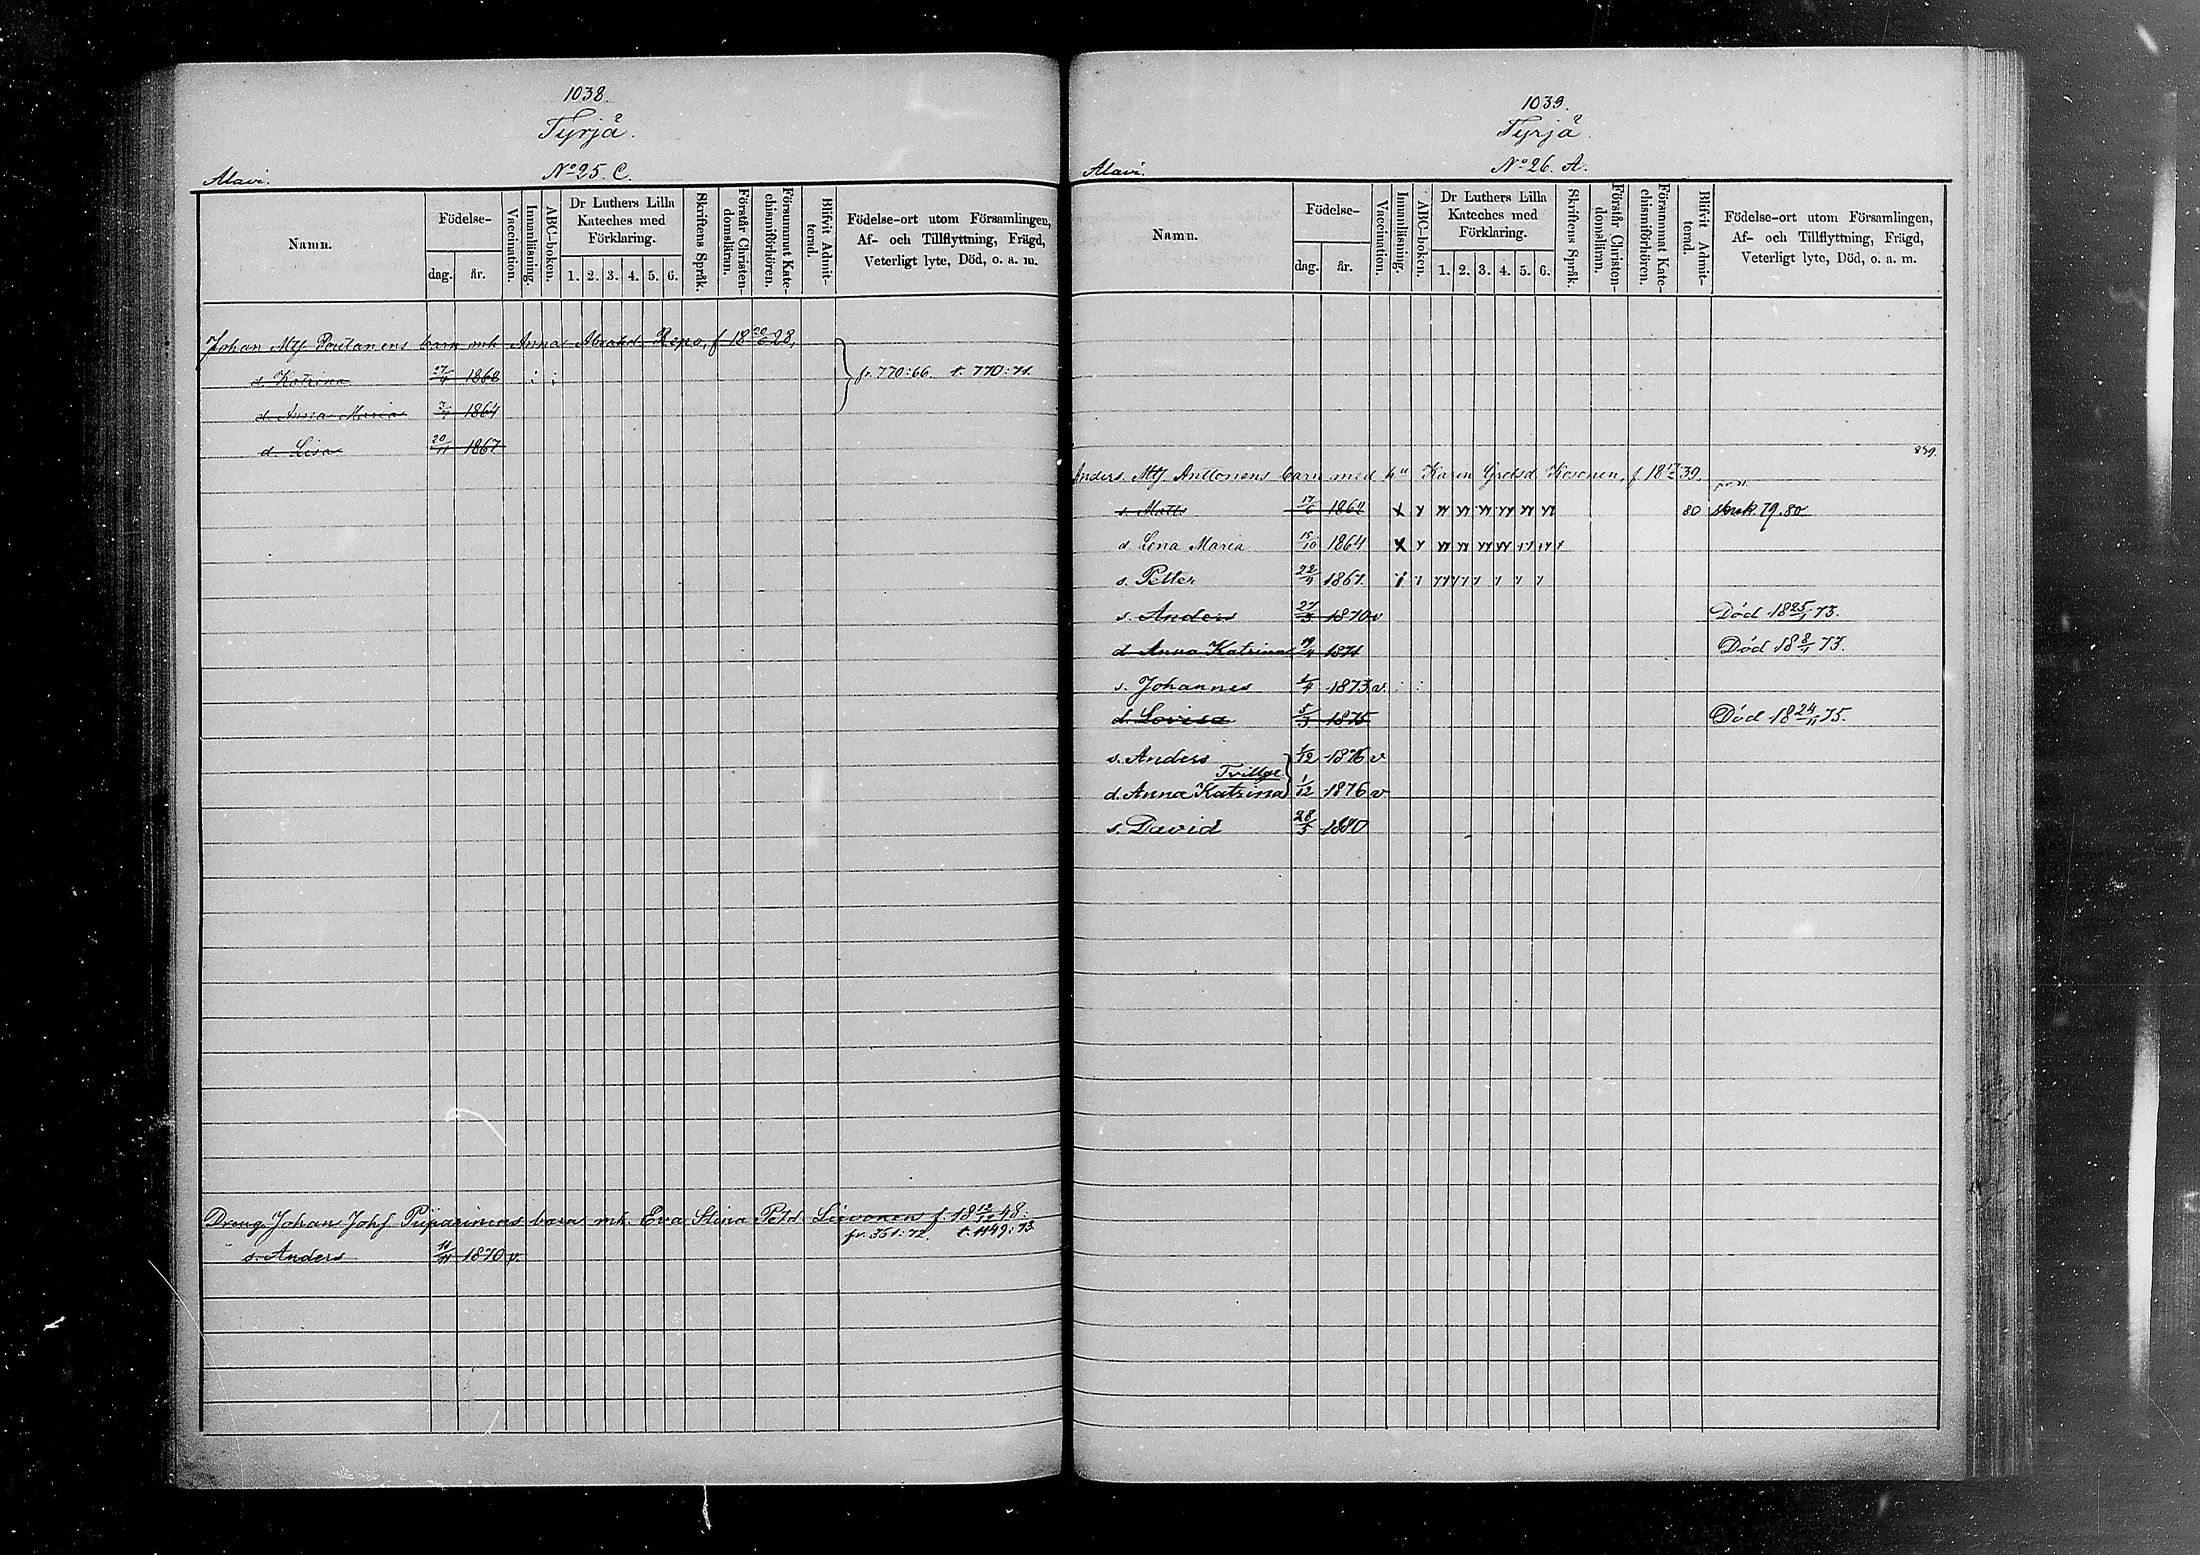 1038.
Tyrjå.
Alavi.
No 25. C.
Namn.
Födelse-
dag.
år.
Vaccination.
Innanläsning.
ABC-boken.
Dr Luthers Lilla
Kateches med
Förklaring.
1. 2. 3. 4. 5. 6.
Skriftens Språk.
Förstår Christen-
domsläran.
Försummat Kate-
chismiförhören.
Blifvit Admit-
terad.
Födelse-ort utom Församlingen,
Af- och Tillflyttning, Frägd,
Veterligt lyte, Död, o. a. m.
Johan Mtj Poutanens barn mh Anna Abrahd Repo, f 18 20/6 28,
Katrina 1868 fr. 770:66. t. 770:71.
d. Anna Maria 1864
d. Lisa 20/11 1867
Dreng Johan Johf Piiparinens barn mh. Eva Stina Petd Sievonen f 18 12/12 48:
fr. 351:72. t. 1149:73.
s. Anders 11/11 1870 v.
1039.
Tyrjå
Alavi.
No 26. A.
Namn.
Födelse-
dag.
år.
Vaccination.
Innanläsning.
ABC-boken.
Dr Luthers Lilla
Kateches med
Förklaring.
1. 2. 3. 4. 5. 6.
Skriftens Språk.
Förstår Christen-
domsläran.
Försummat Kate-
chismiförhören.
Blifvit Admit-
terad.
Födelse-ort utom Församlingen,
Af- och Tillflyttning, Frägd,
Veterligt lyte, Död, o. a. m.
839.
Anders Mtj. Anttonens barn med hu Karin Gretsd Kosonen, f. 18 39.
s. Matts 17/6 80 79.80
d. Lena Maria 15/10 1864
s. Petter 1867.
s. Anders 27/3 1870 v Död 18 25/1 73.
d. Anna Katrina 1871 Död 18 8/1 73.
s. Johannes 1/4 1873 v.
d. Lovisa 5/3 1875 Död 18 24/11 75.
s. Anders 1/12 1876 v
Tvillgr
d. Anna Katrina 1/12 1876 v
s. David 28/5 1880